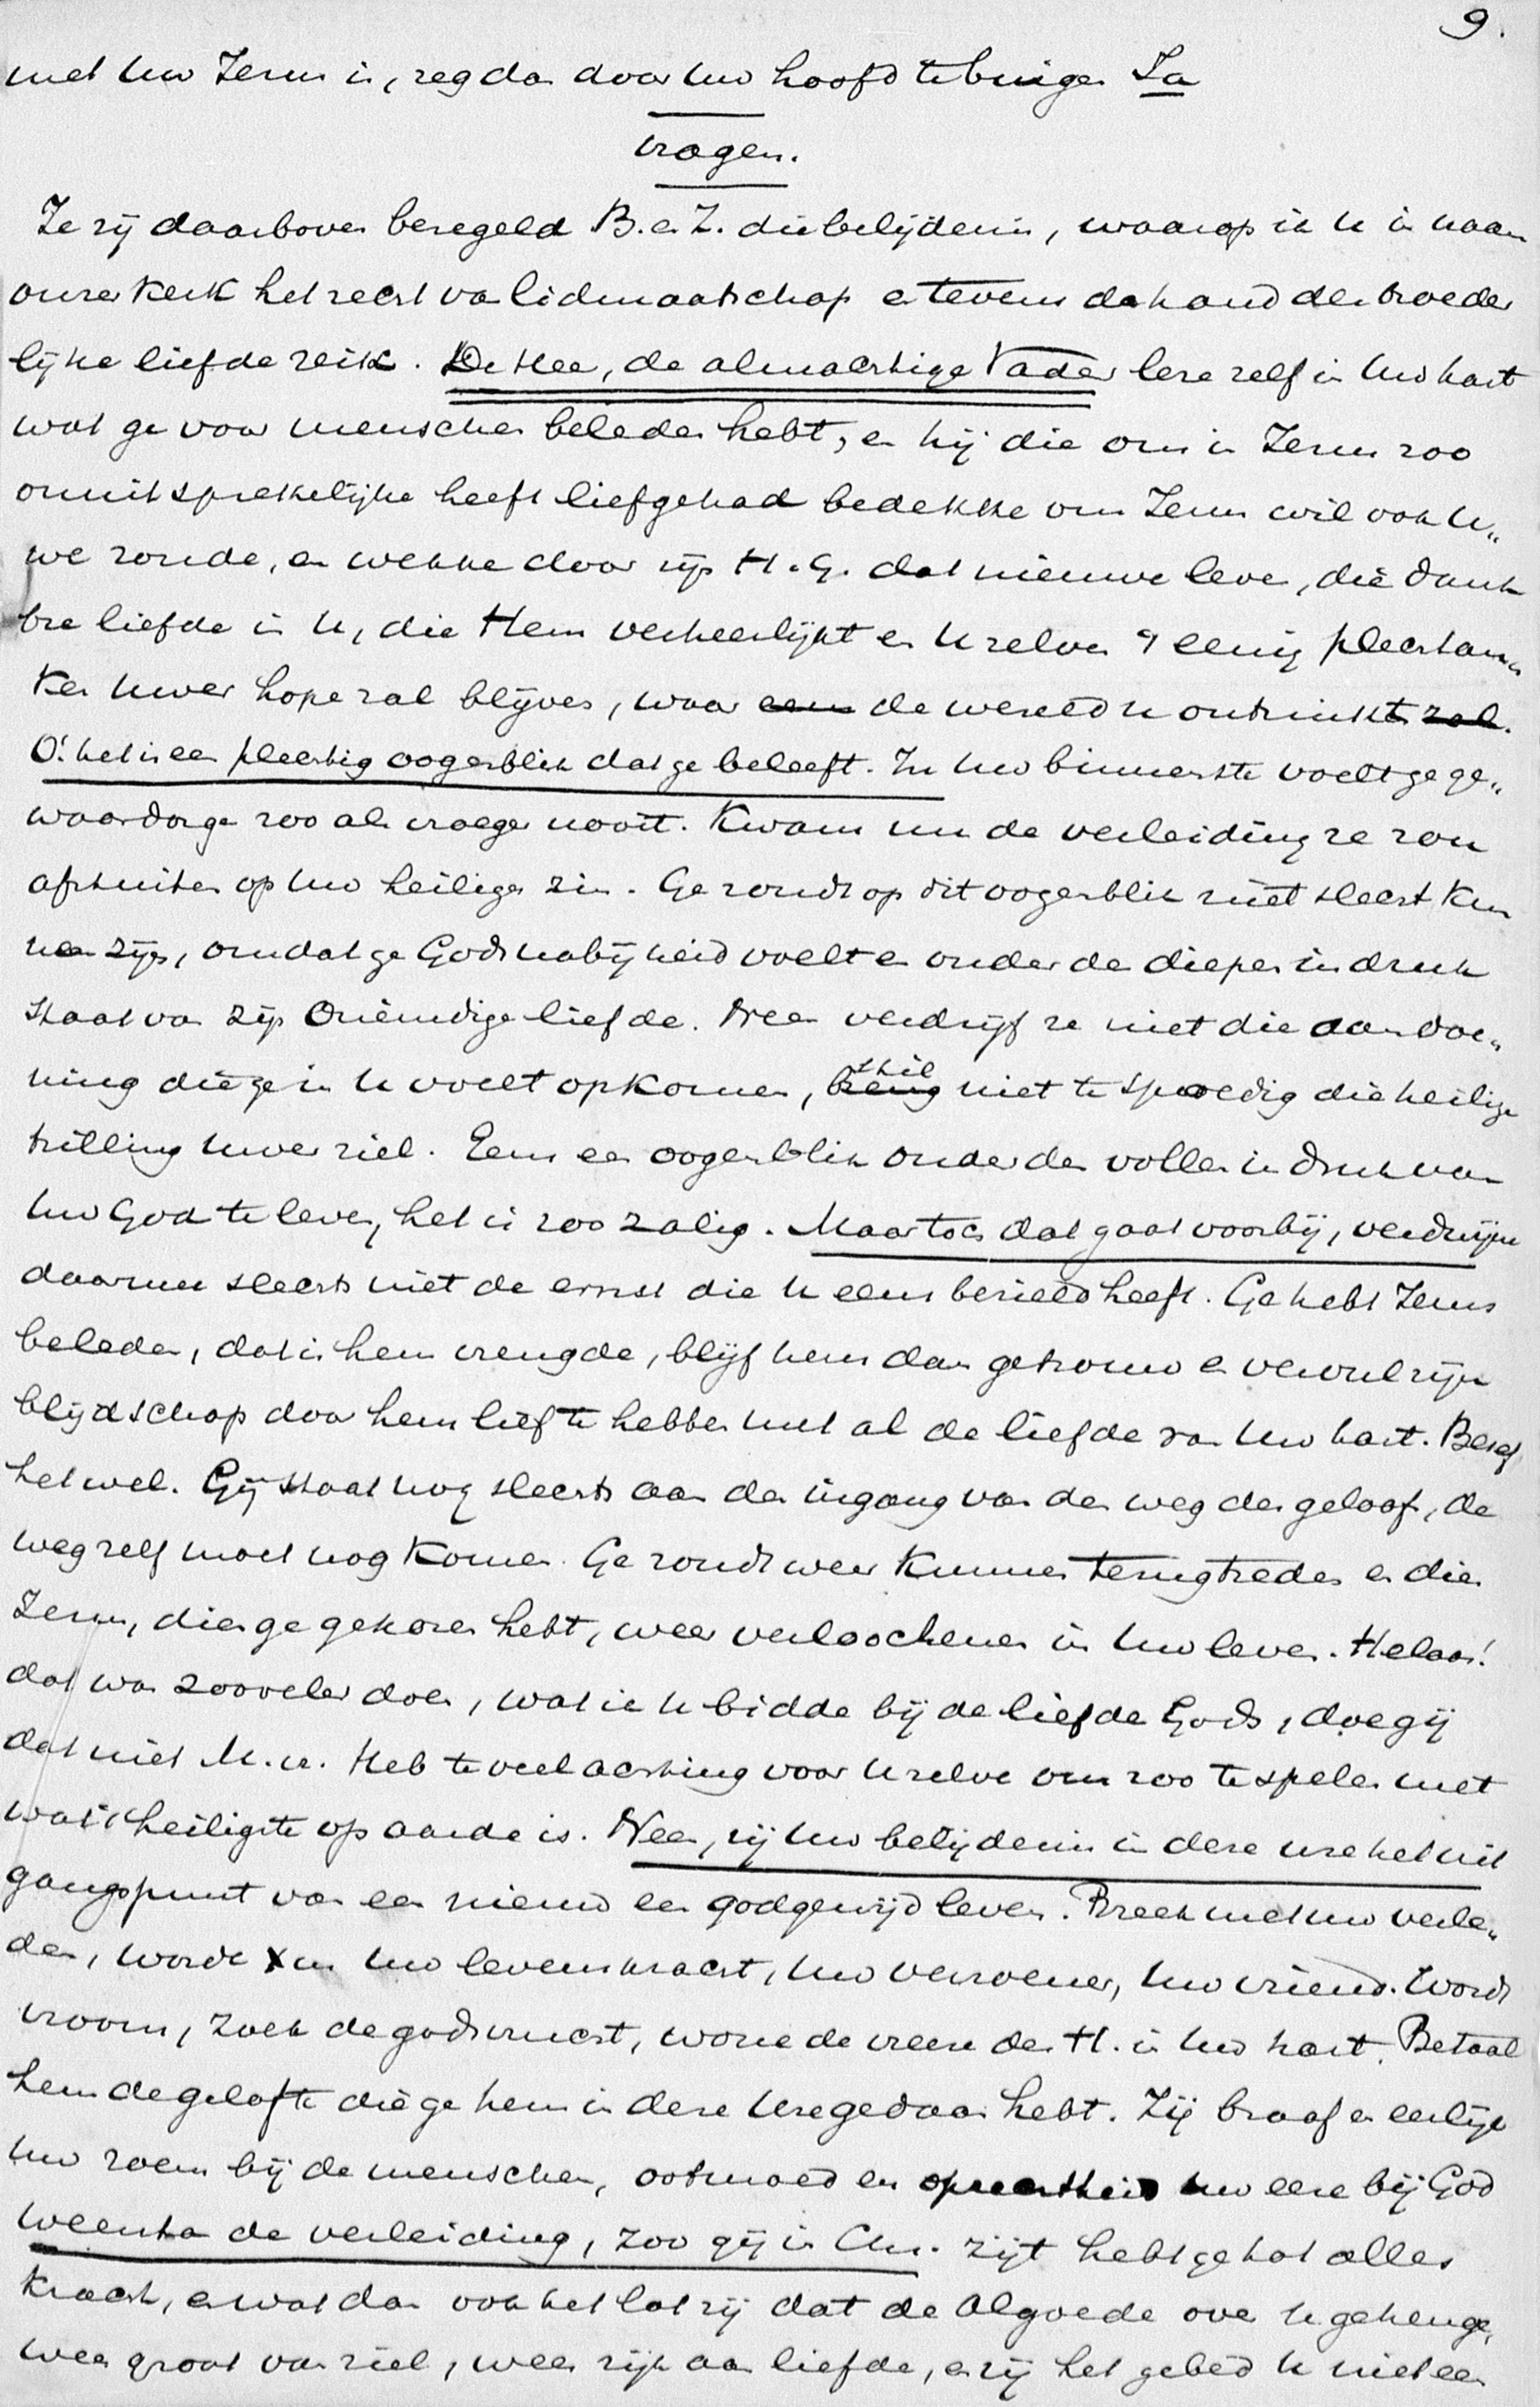 9.
met uw Jezus is, zeg dan door uw hoofd te buigen Ja
vragen.
Ze zij daarboven bezegeld B. e Z. die belijdenis, waarop ik U in naam
onzer kerk het recht van lidmaatschap en tevens de hand der broeder
lijke liefde reik. De Heer, de almachtige Vader leze zelf in Uw hart
wat ge voor menschen beleden hebt, en hij die ons in Jezus zoo
onuitsprekelijke heeft liefgehad bedekke om Jezus wil ook U„
we zonde, en wekke door zijn H. G. dat nieuwe leven, die dank
bre liefde in U, die Hem verheerlijkt en U zelven 't eenig plechtan„
ker uwer hope zal blijven, waar de wereld u ontzinkt.
O! het is een plechtig oogenblik dat ge beleeft. In Uw binnenste voelt ge ge„
waardingen zoo als vroeger nooit. Kwam nu de verleiding ze zou
afstuiten op Uw heiligen zin. Ge zoudt op dit oogenblik niet slecht kun
nen zijn, omdat ge Gods nabijheid voelt en onder den diepen indruk
staat van zijn oneindige liefde. Neen verdrijf ze niet die aandoe„
ning die ge in U voelt opkomen, stil niet te spoedig die heilige
trilling uwer ziel. Eens een oogenblik onder den vollen indruk van
Uw God te leven, het is zoo zalig. Maar toch dat gaat voorbij, verdwijne
daarmee slechts niet de ernst die U eens bezield heeft. Ge hebt Jezus
beleden, dat is hem vreugde, blijf hem dan getrouw en vervul zijne
blijdschap door hem lief te hebben met al de liefde van Uw hart. Besef
het wel. Gij staat nog slechts aan den ingang van den weg des geloofs, de
weg zelf moet nog komen. Ge zoudt weer kunnen terugtreden en dien
Jezus, dien ge gekozen hebt, weer verloochenen in Uw leven. Helaas!
dat wat zoovelen doen, wat ik U bidde bij de liefde Gods, doe gij
dat niet M. v. Heb te veel achting voor U zelve om zoo te spelen met
wat 't heiligste op aarde is. Neen, zij Uw belijdenis in deze ure het uit
gangspunt van een nieuw een godgewijd leven. Breek met uw verle„
den, worde X us Uw levenskracht, Uw verzoener, Uw vriend. Word
vroom, zoek de godsvrucht, wone de vreeze des H. in Uw hart. Betaal
hem de gelofte die ge hem in deze Ure gedaan hebt. Zij braaf en eerlijk
Uw roem bij de menschen, ootmoed en oprechtheid Uw eere bij God
weersta de verleiding, zoo gij in Chr. zijt hebt ge tot alles
kracht, en wat dan ook het lot zij dat de Algoede over U gehenge,
wees groot van ziel, wees rijk aan liefde, en zij het gebed U niet een